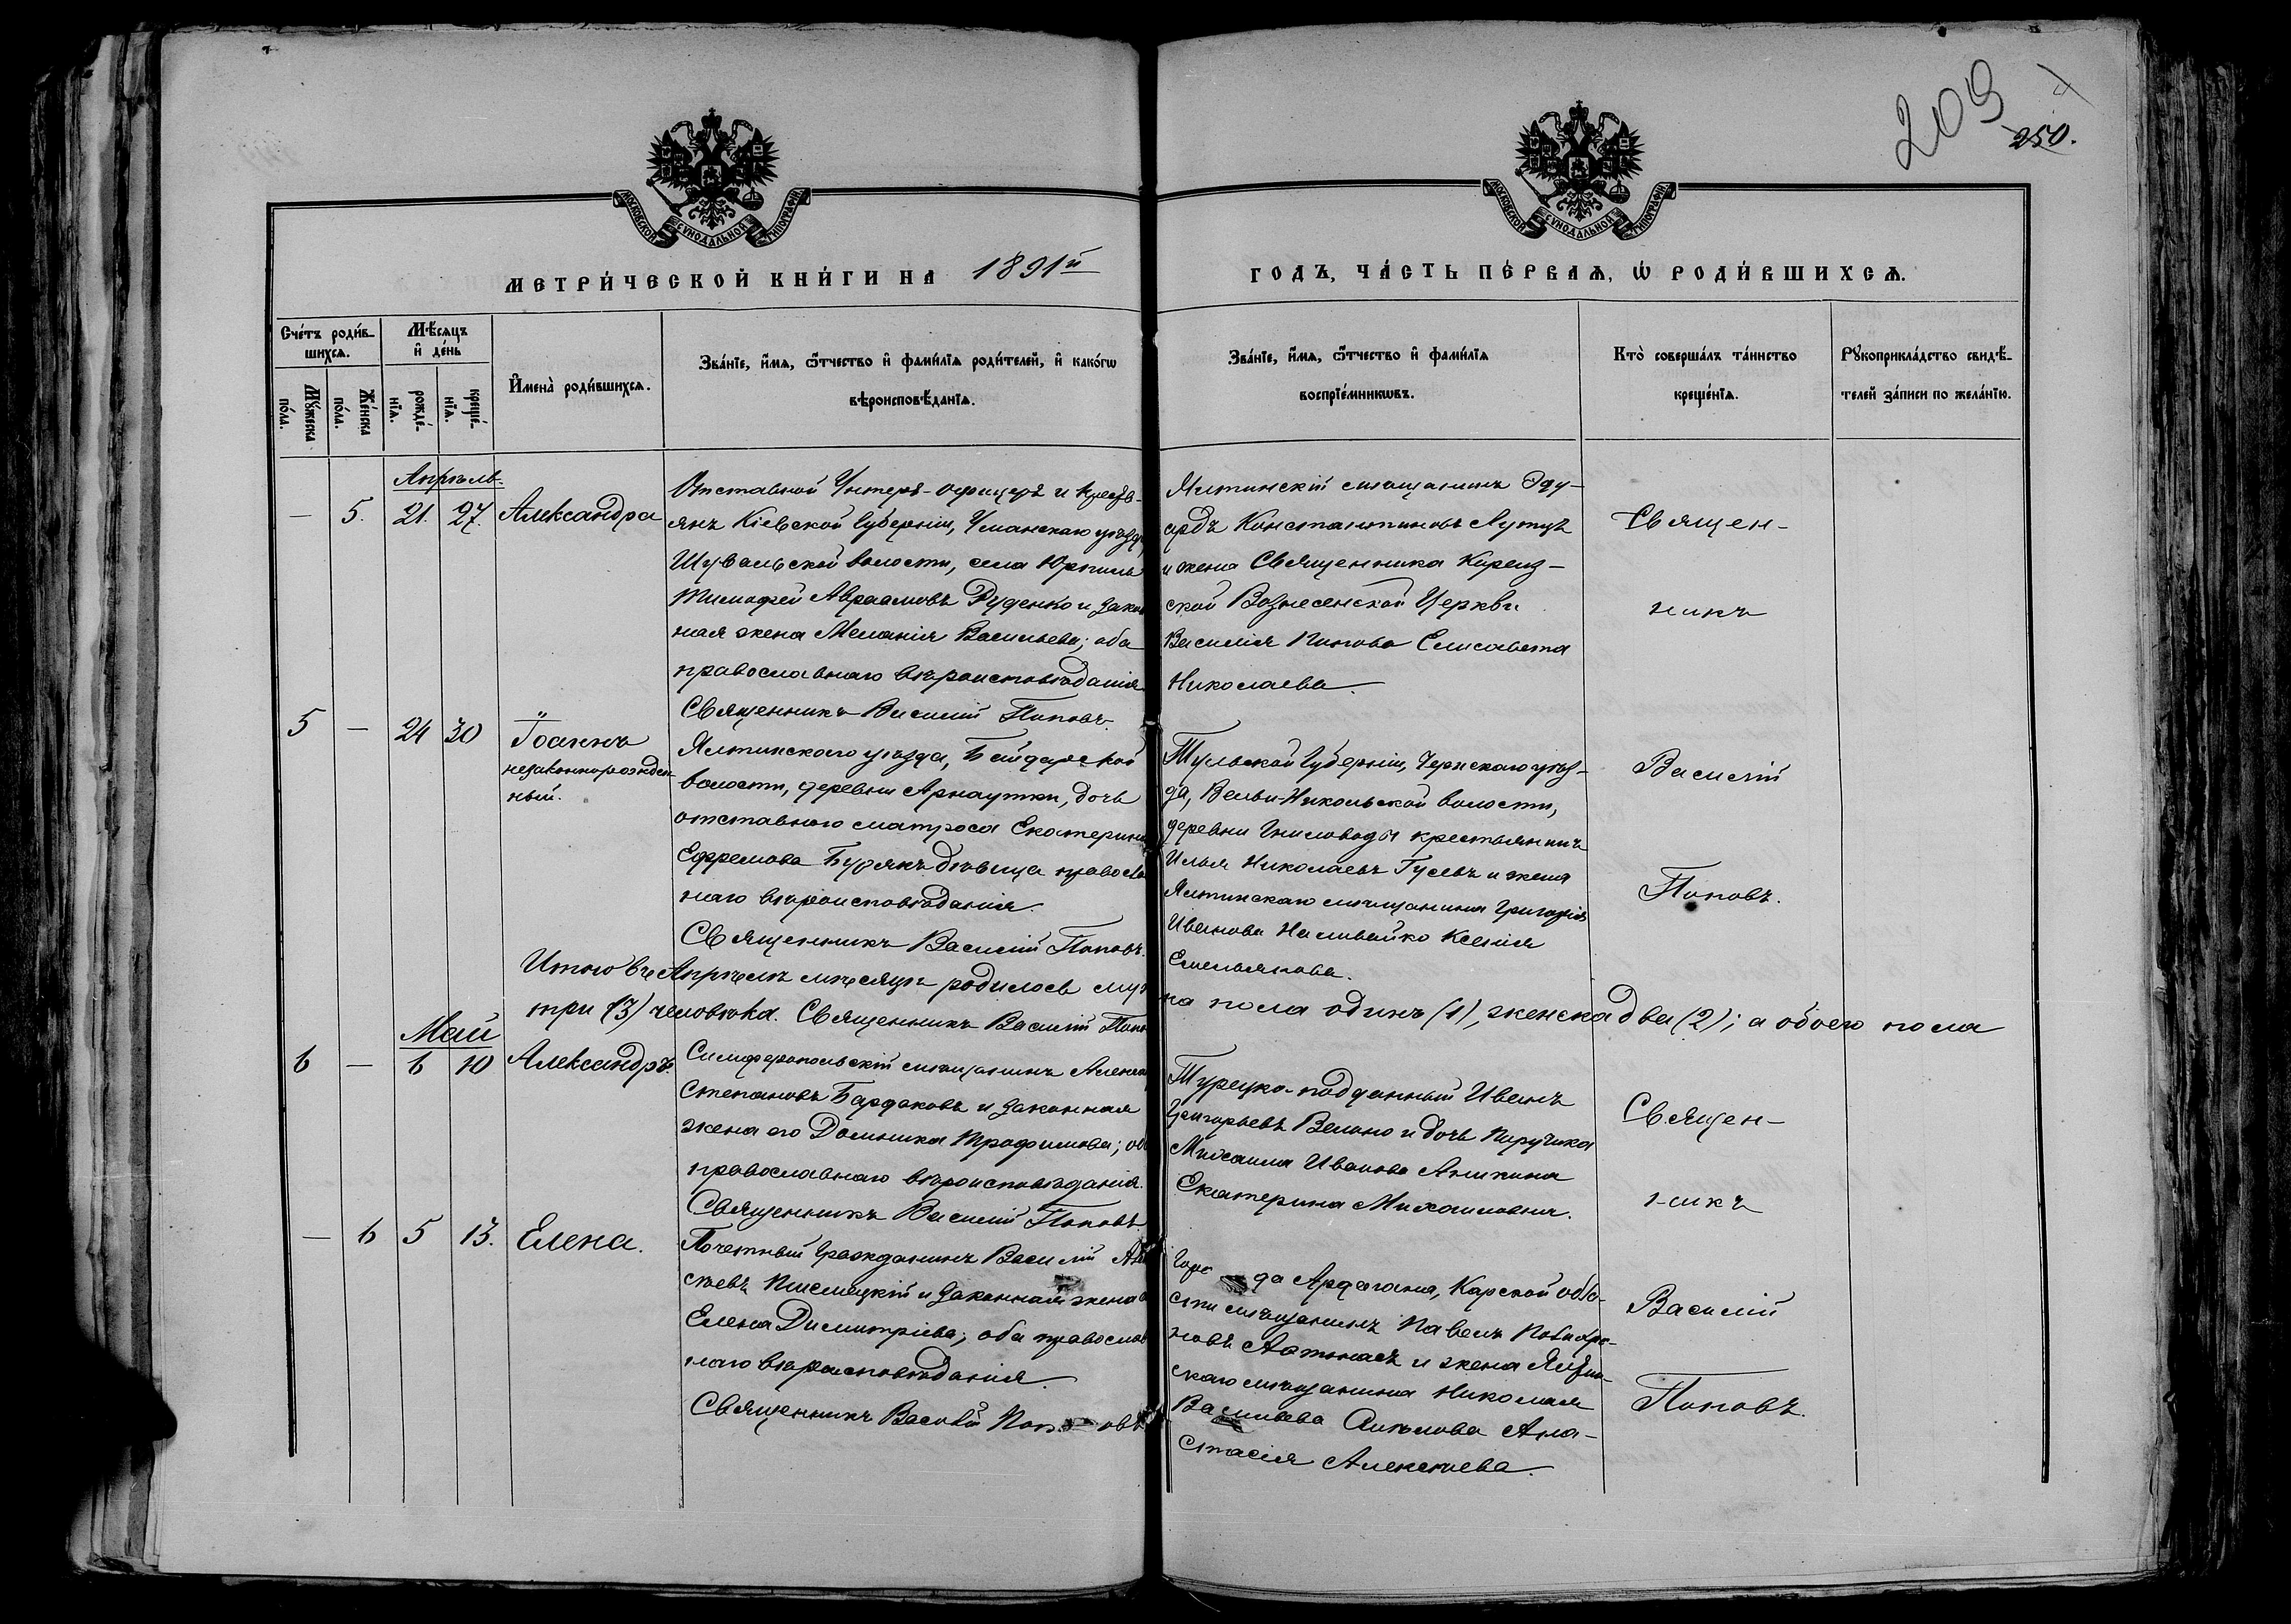 209
250.
МОСКОВСКОЙ СѴНОДАЛЬНОЙ ТИПОГРАФІИ
МОСКОВСКОЙ СѴНОДАЛЬНОЙ ТИПОГРАФІИ
МЕТРИ́ЧЕСКОЙ КНИ́ГИ НА 1891й
ГОДЪ, ЧА́СТЬ ПЕ́РВАѦ, Ѡ҆ РОДИ́ВШИХСѦ.
Сче́тъ роди́в-
шихсѧ.
Мꙋ́жеска по́ла.
Же́нска по́ла.
Мѣ́сѧцъ
и҆ де́нь
рожде́-
нїѧ.
креще́-
нїѧ.
И҆мена̀ роди́вшихсѧ.
Зва́нїе, и҆́мѧ, ѻ҆́тчество и҆ фами́лїѧ роди́телей, и҆ како́гѡ
вѣроисповѣ́данїѧ.
Зва́нїе, и҆́мѧ, ѻ҆́тчество и҆ фами́лїѧ
воспрїе́мникѡвъ.
Кто̀ соверша́лъ та́инство
креще́нїѧ.
Рꙋкоприкла́дство свидѣ́-
телей за́писи по жела́нїю.
Апрѣль.
— 5. 21. 27. Александра
Отставной Унтеръ-офицеръ и крестья-
янъ Кіевской Губерніи, Уманскаго уѣзда,
волости, села
Тимофей Авраамовъ Руденко и закон
ная жена Меланія Васильева; оба
православнаго вѣроисповѣданія
Священникъ Василій Поповъ.
Ялтинскій мѣщанинъ Эду-
ардъ Константиновъ
и жена Священника Кореиз-
ской Вознесенской Церкви
Василія Попова Елисавета
Николаева.
Священ-
никъ
Василій
Поповъ.
5 — 24 30 Іоаннъ
незаконнорожден-
ный.
Ялтинскаго уѣзда, Байдарской
волости, деревни Арнаутки, дочь
отставнаго матроса Екатерина
Ефремова Бурякъ дѣвица правосла
наго вѣроисповѣданія.
Священникъ Василій Поповъ.
Тульской Губерніи, Чернскаго уѣз-
да, Никольской волости,
деревни Гниловоды крестьянинъ
Илья Николаевъ Гусевъ и жена
Ялтинскаго мѣщанина Григорія
Иванова Наливайко Ксенія
Емельянова.
Итого въ Апрѣлѣ мѣсяцѣ родилось муж
на пола одинъ (1), женска два (2); а обоего пола
три (3) человѣка. Священникъ Василій Попо
Май
6 — 6 10 Александръ.
Симферопольскій мѣщанинъ
Степановъ Бардаковъ и законная
жена его Домника Трофимова; об
православнаго вѣроисповѣданія.
Священникъ Василій Поповъ.
Турецко-подданный Иванъ
Григорьевъ Велано и дочь Поручика
Михаила Иванова Аникина
Екатерина Михайловна.
Священ-
никъ
Василій
Поповъ.
— 6 5 13. Елена.
Почетный Гражданинъ Василій
и законная жена
Елена Димитріева; оба правосла
наго вѣроисповѣданія.
Священникъ Василій Поповъ
Города Ардагана, Карской обла-
сти мѣщанинъ Павелъ
и жена
скаго мѣщанина Николая
Васильева Ана-
стасія Алексѣева.